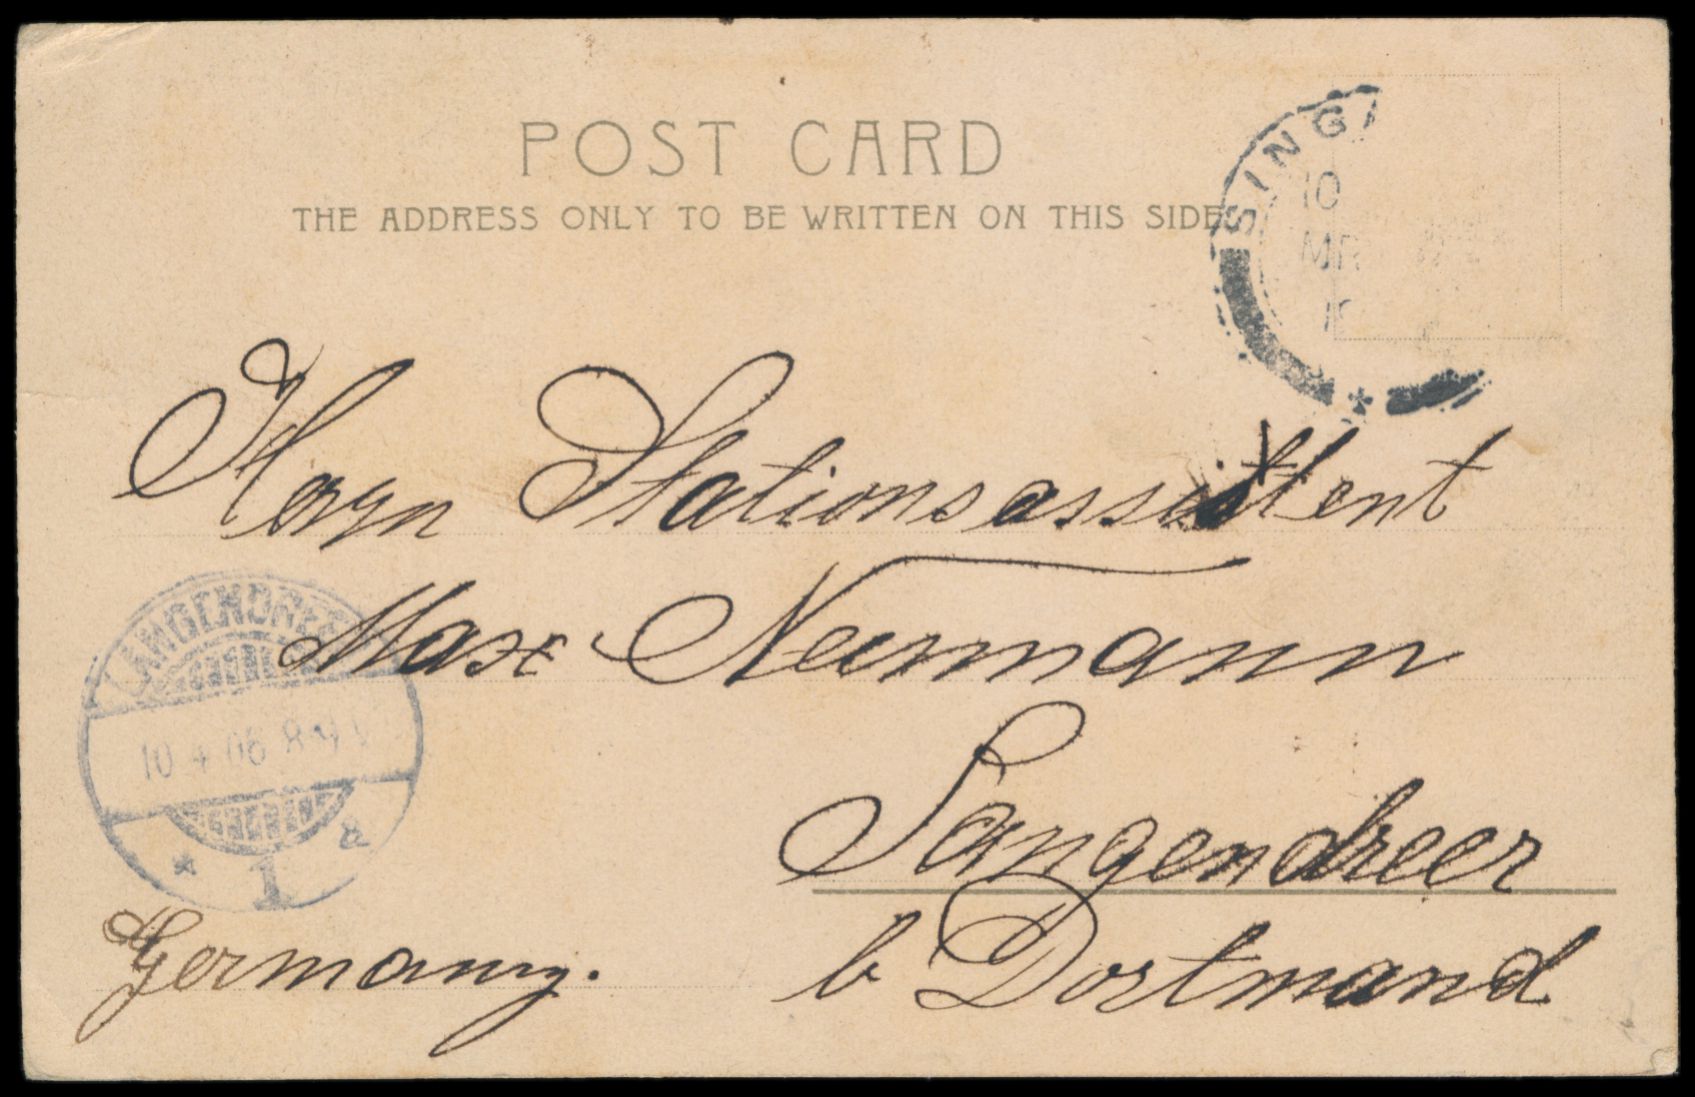 POST CARD
THE ADDRESS ONLY TO BE WRITTEN ON THIS SIDE
SING
10
MR
Herrn Stationsassistent
Max Neumann
Langendreer
b Dortmund
Germany.
LANGENDREE
10 4 06 8-9 V
* 1 a